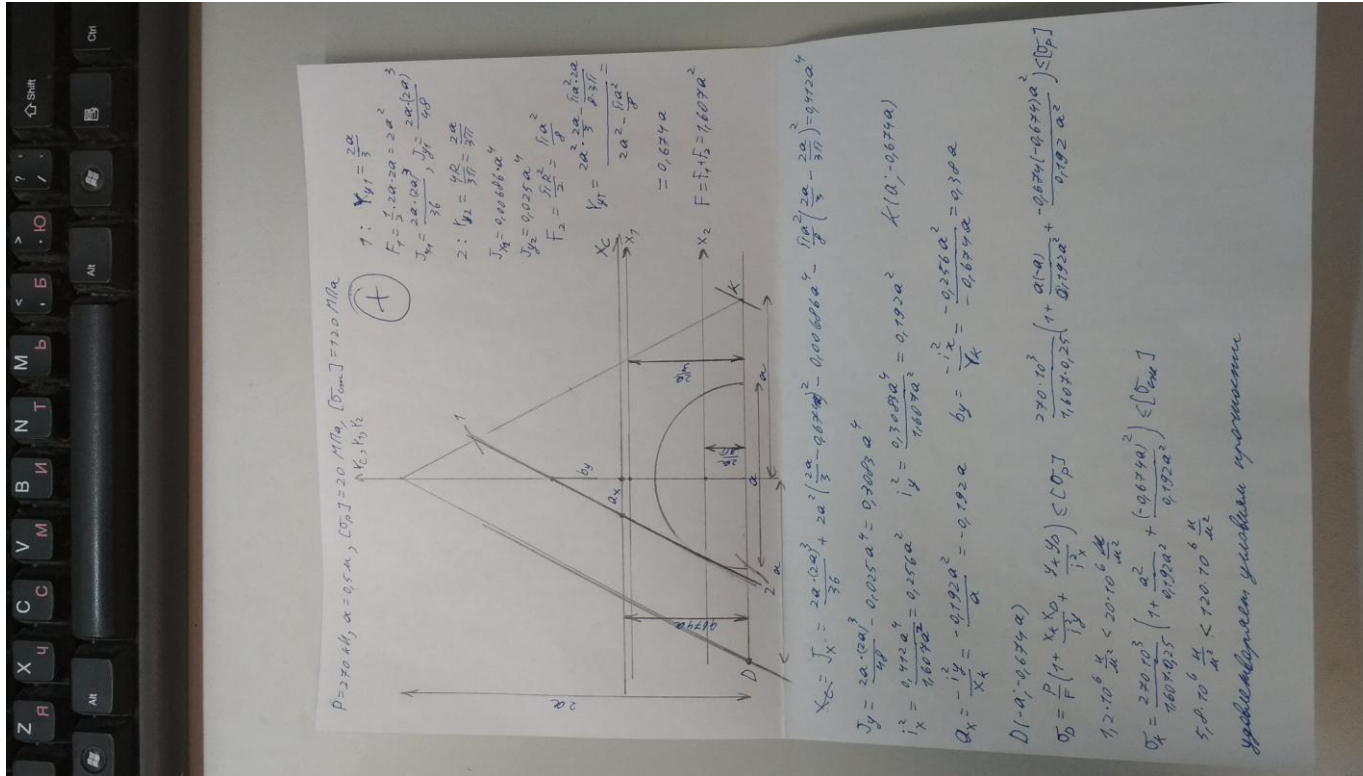 P=270 кН, a=0,5м, [σp]=20 МПа, [σсж]=120 МПа
yc, y1, y2
+
1: Yy1 = 2a/3
F1 = 1/2·2a·2a = 2a²
Jx1 = 2a·(2a)³/36, Jy1 = 2a·(2a)³/48
2: Yy2 = 4R/3π = 2a/3π
Jx2 = 0,00686·a⁴
Jy2 = 0,025a⁴
F2 = πR²/2 = πa²/8
YyT = (2a²·2a/3 − πa²·2a/8·3π)/(2a² − πa²/8) =
= 0,674a
F = F1+F2 = 1,607a²
2a
1
by
ax
Xc
x1
x2
0,674a
D
2
a
a
a
K
Jx = 2a·(2a)³/36 + 2a²(2a/3 − 0,674a)² − 0,00686a⁴ − πa²/8(2a/3 − 2a/3π)² = 0,412a⁴
Jy = 2a·(2a)³/48 − 0,025a⁴ = 0,3083a⁴
ix² = 0,412a⁴/1,607a² = 0,256a² iy² = 0,3083a⁴/1,607a² = 0,192a² K(a; −0,674a)
ax = −iy²/xk = −0,192a²/a = −0,192a by = −ix²/Yk = −0,256a²/−0,674a = 0,38a
D(−a; −0,674a)
σD = P/F(1 + xkxD/iy² + ykyD/ix²) ≤ [σp] 270·10³/1,607·0,25(1 + a(−a)/0,192a² + −0,674(−0,674)a²/0,192a²) ≤ [σp]
1,2·10⁶ н/м² < 20·10⁶ н/м²
σk = 270·10³/1,607·0,25(1 + a²/0,192a² + (−0,674a)²/0,192a²) ≤ [σсж]
5,8·10⁶ н/м² < 120·10⁶ н/м²
удовлетворяет условиям прочности
Z Я
X Ч
C С
V М
B И
N Т
M Ь
< , Б
> . Ю
? /
Shift
Alt
Alt
Ctrl